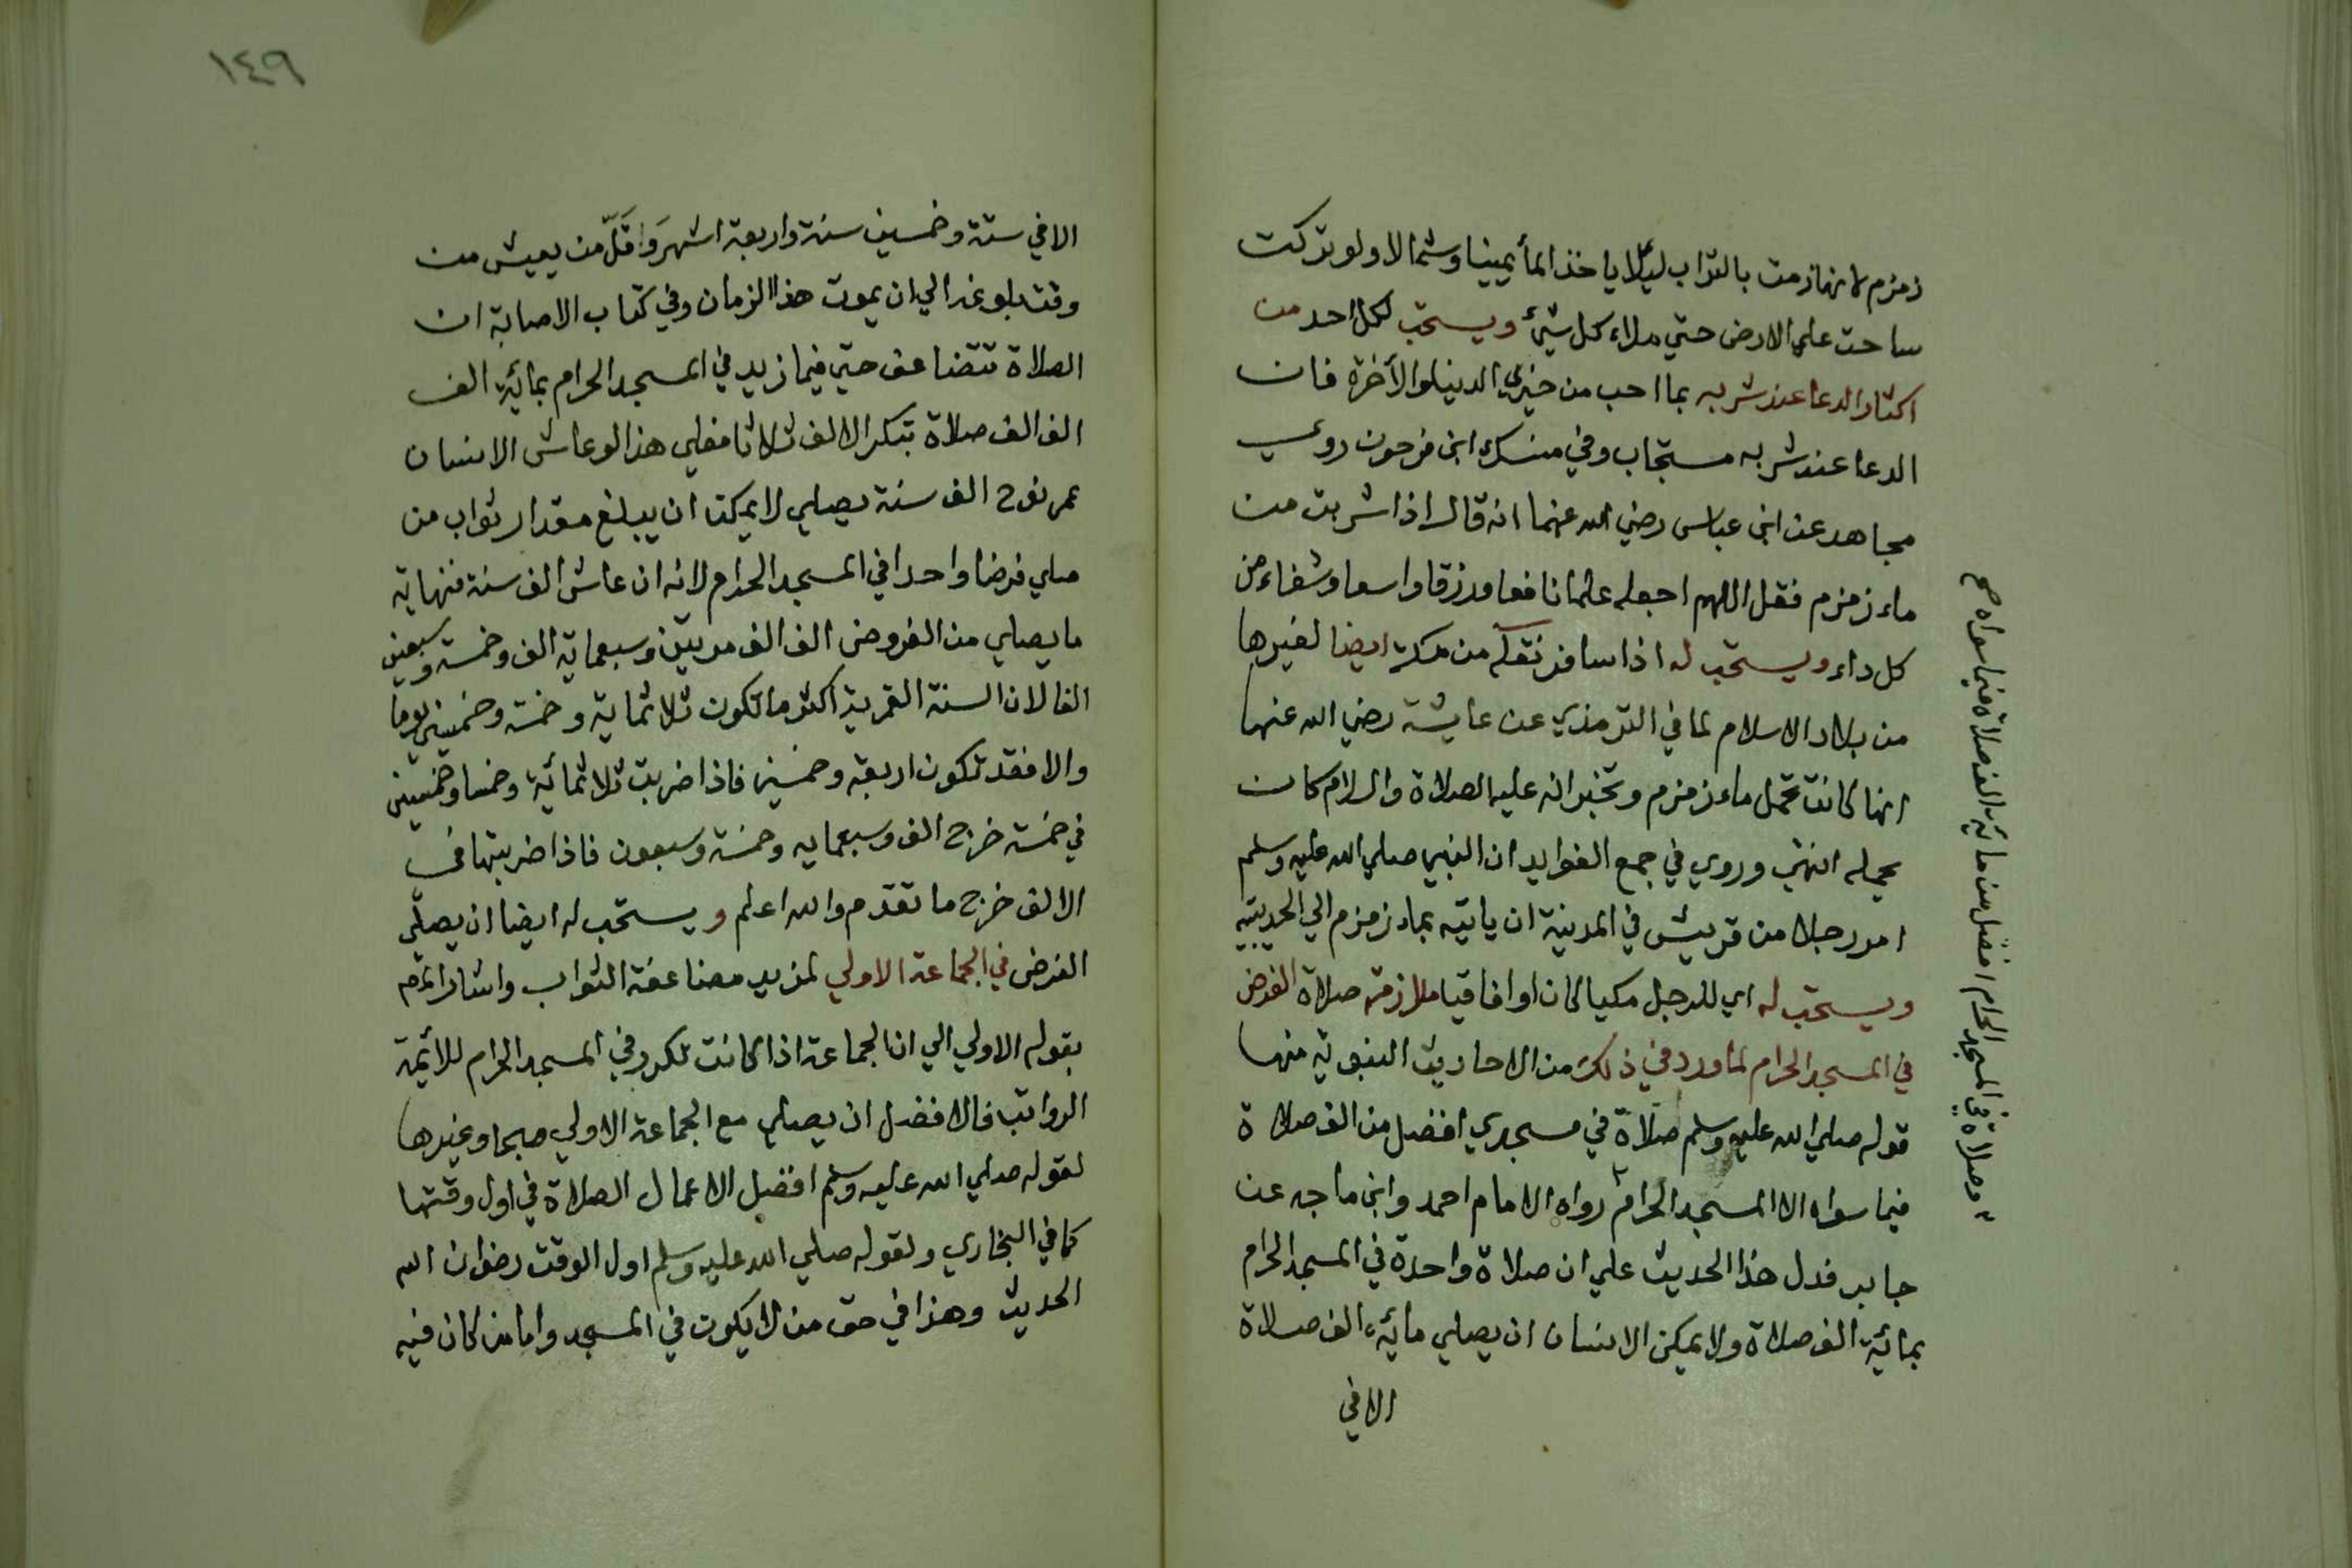 زمزم لانها زمت بالتراب ليلا ياخذ المأ يمينا وشمالا ولو تركت
ساحت علي الارض حتي ملاء كل شيئ ويستحب لكل احد من
اكثار الدعا عند شربه بما احب من خيري الدنيا والأخرة فان
الدعا عند شربه مستجاب وفي منسك ابن فرحون روي
مجاهد عن ابن عباس رضي الله عنهما انه قال اذا شربت من
ماء زمزم فقل اللهم اجعله علما نافعا ورزقا واسعا وشفاء من
كل داء ويستحب له اذا سافر نقله من مكة ايضا لغيرها
من بلاد الاسلام لما في الترمذي عن عايشة رضي الله عنها
انها كانت تحمل ماء زمزم وتخبر انه عليه الصلاة والسلام كان
يحمله انتهي وروي في جمع الفوايد ان النبي صلي الله عليه وسلم
امر رجلا من قريش في المدينة ان ياتيه بماء زمزم الي الحديبية
ويستحب له اي للرجل مكيا كان او افاقيا ملازمة صلاة الفرض
في المسجد الحرام لما ورد في ذلك من الاحاديث النبوية منها
قوله صلي الله عليه وسلم صلاة في مسجدي افضل من الف صلاة
فيما سواه الا المسجد الحرام رواه الامام احمد وابن ماجه عن
جابر فدل هذا الحديث علي ان صلاة واحدة في المسجد الحرام
بمائة الف صلاة ولا يمكن الانسان ان يصلي مائة الف صلاة
الا في
وصلاة في المسجد الحرام افضل من مائة الف صلاة فيما سواه صح
١٤٩
الا في ستة وخمسين سنة واربعة اشهر وَاقَلّ من يعيش من
وقت بلوغه الي ان يموت هذا الزمان وفي كتاب الاصابة ان
الصلاة تتضاعف حتي فيما زيد في المسجد الحرام بمائة الف
الف الف صلاة بتكرا الالف ثلاثا فعلي هذا لو عاش الانسان
عمر نوح الف سنة يصلي لا يمكنه ان يبلغ مقدار ثواب من
صلي فرضا واحدا في المسجد الحرام لانه ان عاش الف سنة فنهاية
ما يصلي من الفروض الف الف مرتين وسبعماية الف وخمسة وسبعين
الفا لان السنة القمرية اكثر ما تكون ثلاثماية وخمسة وخمسين يوما
والا فقد تكون اربعة وخمسين فاذا ضربت ثلاثمائة وخمسا وخمسين
في خمسة خرج الف وسبعمايه وخمسة وسبعون فاذا ضربتها في
الالف خرج ما تقدم والله اعلم ويستحب له ايضا ان يصلّي
الفرض في الجماعة الاولي لمزيد مضاعفة الثواب واشار
بقوله الاولي الي ان الجماعة اذا كانت تكرر في المسجد الحرام للائمة
الرواتب فالافضل ان يصلي مع الجماعة الاولي صبحا وغيرها
لقوله صلي الله عليه وسلم افضل الاعمال الصلاة في اول وقتها
كما في البخاري ولقوله صلي الله عليه وسلم اول الوقت رضوان الله
الحديث وهذا في حق من لا يكون في المسجد واما من كان فيه